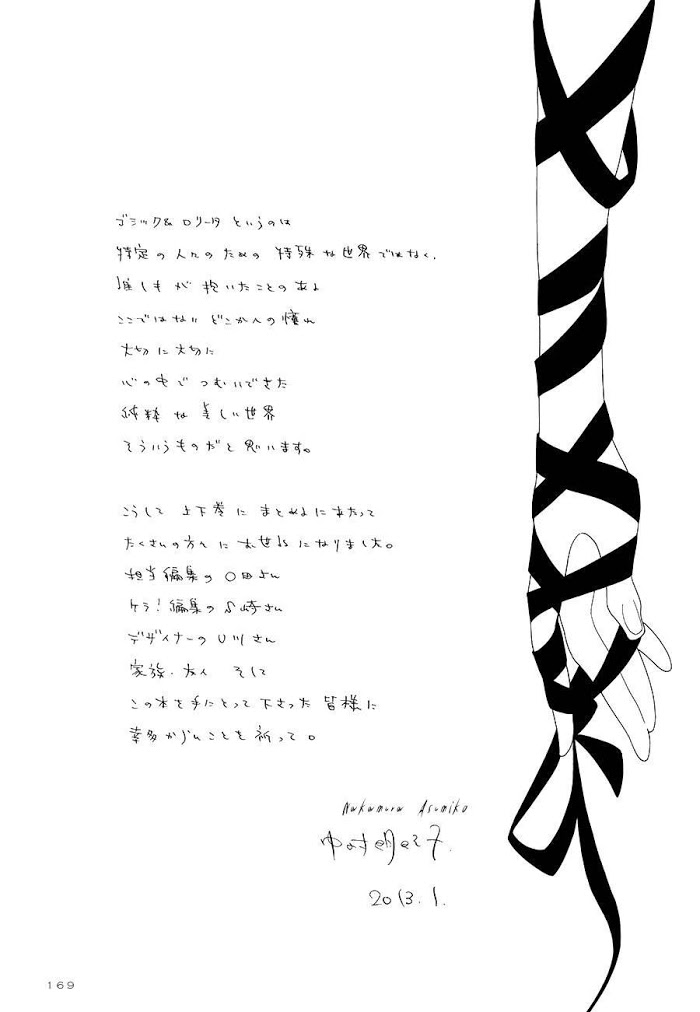 ゴシック&ロリータ というのは
特定の人々のための 特殊な世界ではなく、
誰しもが 抱いたことのある
ここではない どこかへの憧れ
大切に大切に
心の中で つむいできた
純粋な美しい世界
そういうものだと思います。
こうして 上下巻に まとめるにあたって
たくさんの方々に お世話になりました。
担当編集の〇田さん
ケラ!編集の 崎さん
デザイナーの U川さん
家族・友人 そして
この本を手にとって下さった 皆様に
幸多からんことを祈って。
Nakamura Asumiko
中村明日美子.
2013.1.
169